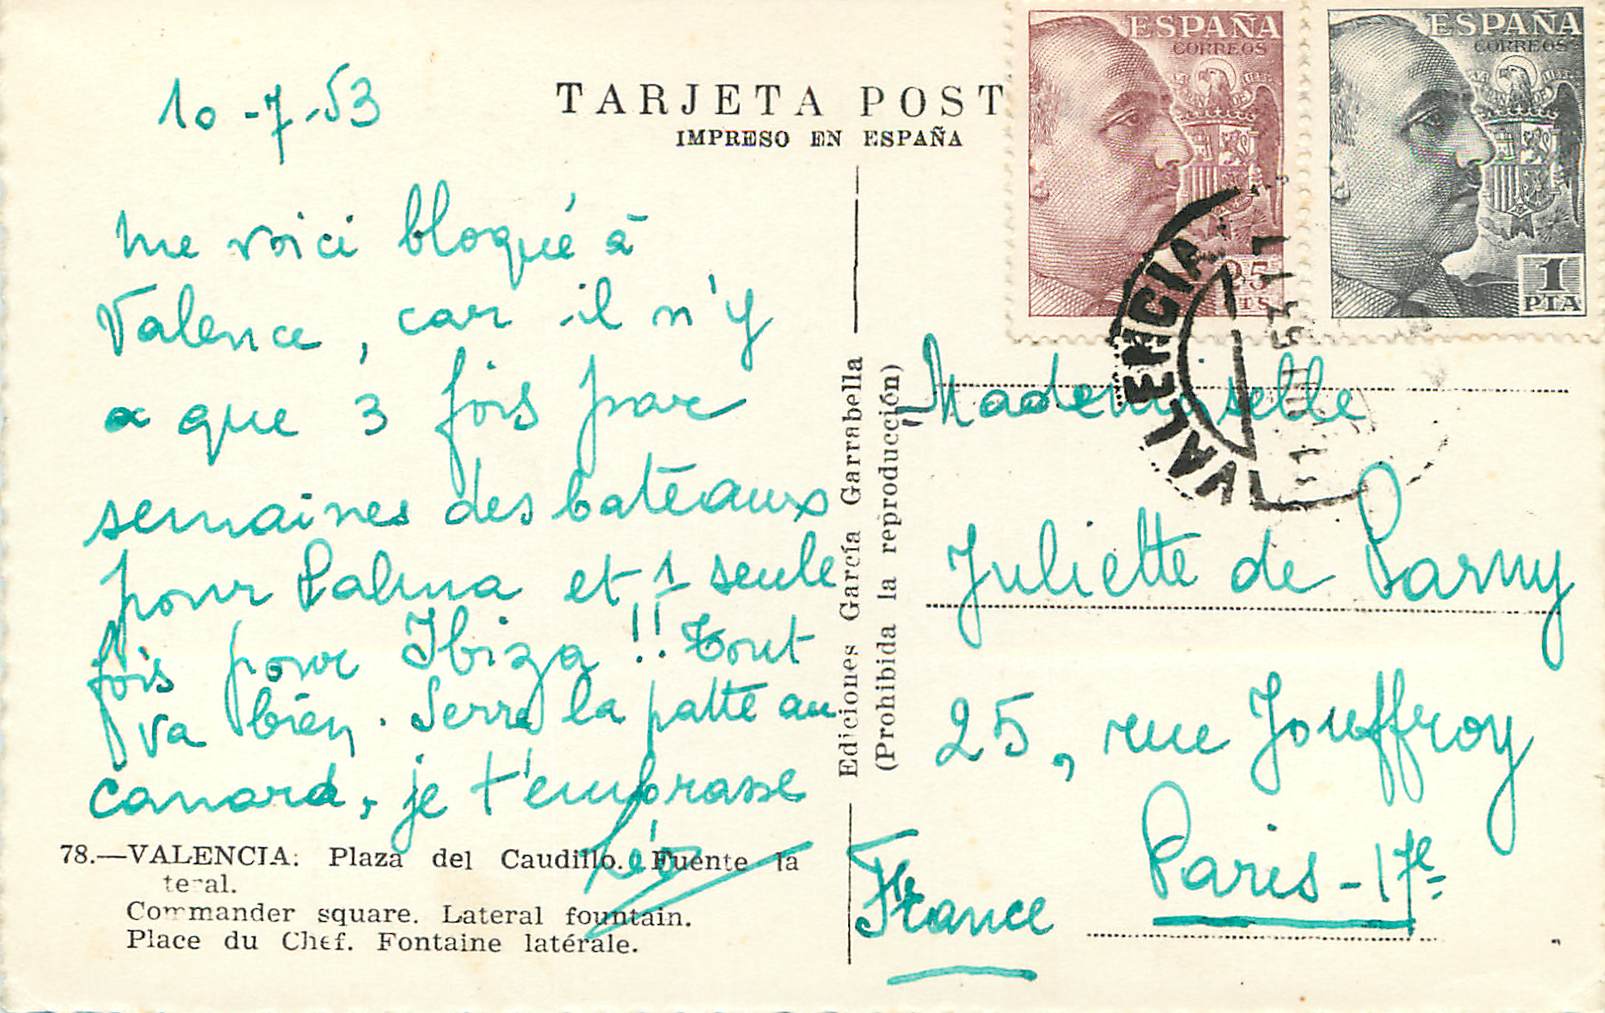 10-7-53
TARJETA POST
IMPRESO EN ESPAÑA
ESPAÑA
CORREOS
25
CTS
ESPAÑA
CORREOS
1
PTA
VALENCIA
me voici bloqué à
Valence, car il n'y
a que 3 fois par
semaines des bateaux
pour Palma et 1 seule
fois pour Ibiza !! Tout
va bien. Serre la patte au
canard, je t'embrasse
Léo
Ediciones García Garrabella
(Prohibida la reproducción)
Mademoiselle
Juliette de Parny
25, rue Jouffroy
Paris-17e
France
78.—VALENCIA: Plaza del Caudillo. Fuente la
teral.
Commander square. Lateral fountain.
Place du Chef. Fontaine latérale.